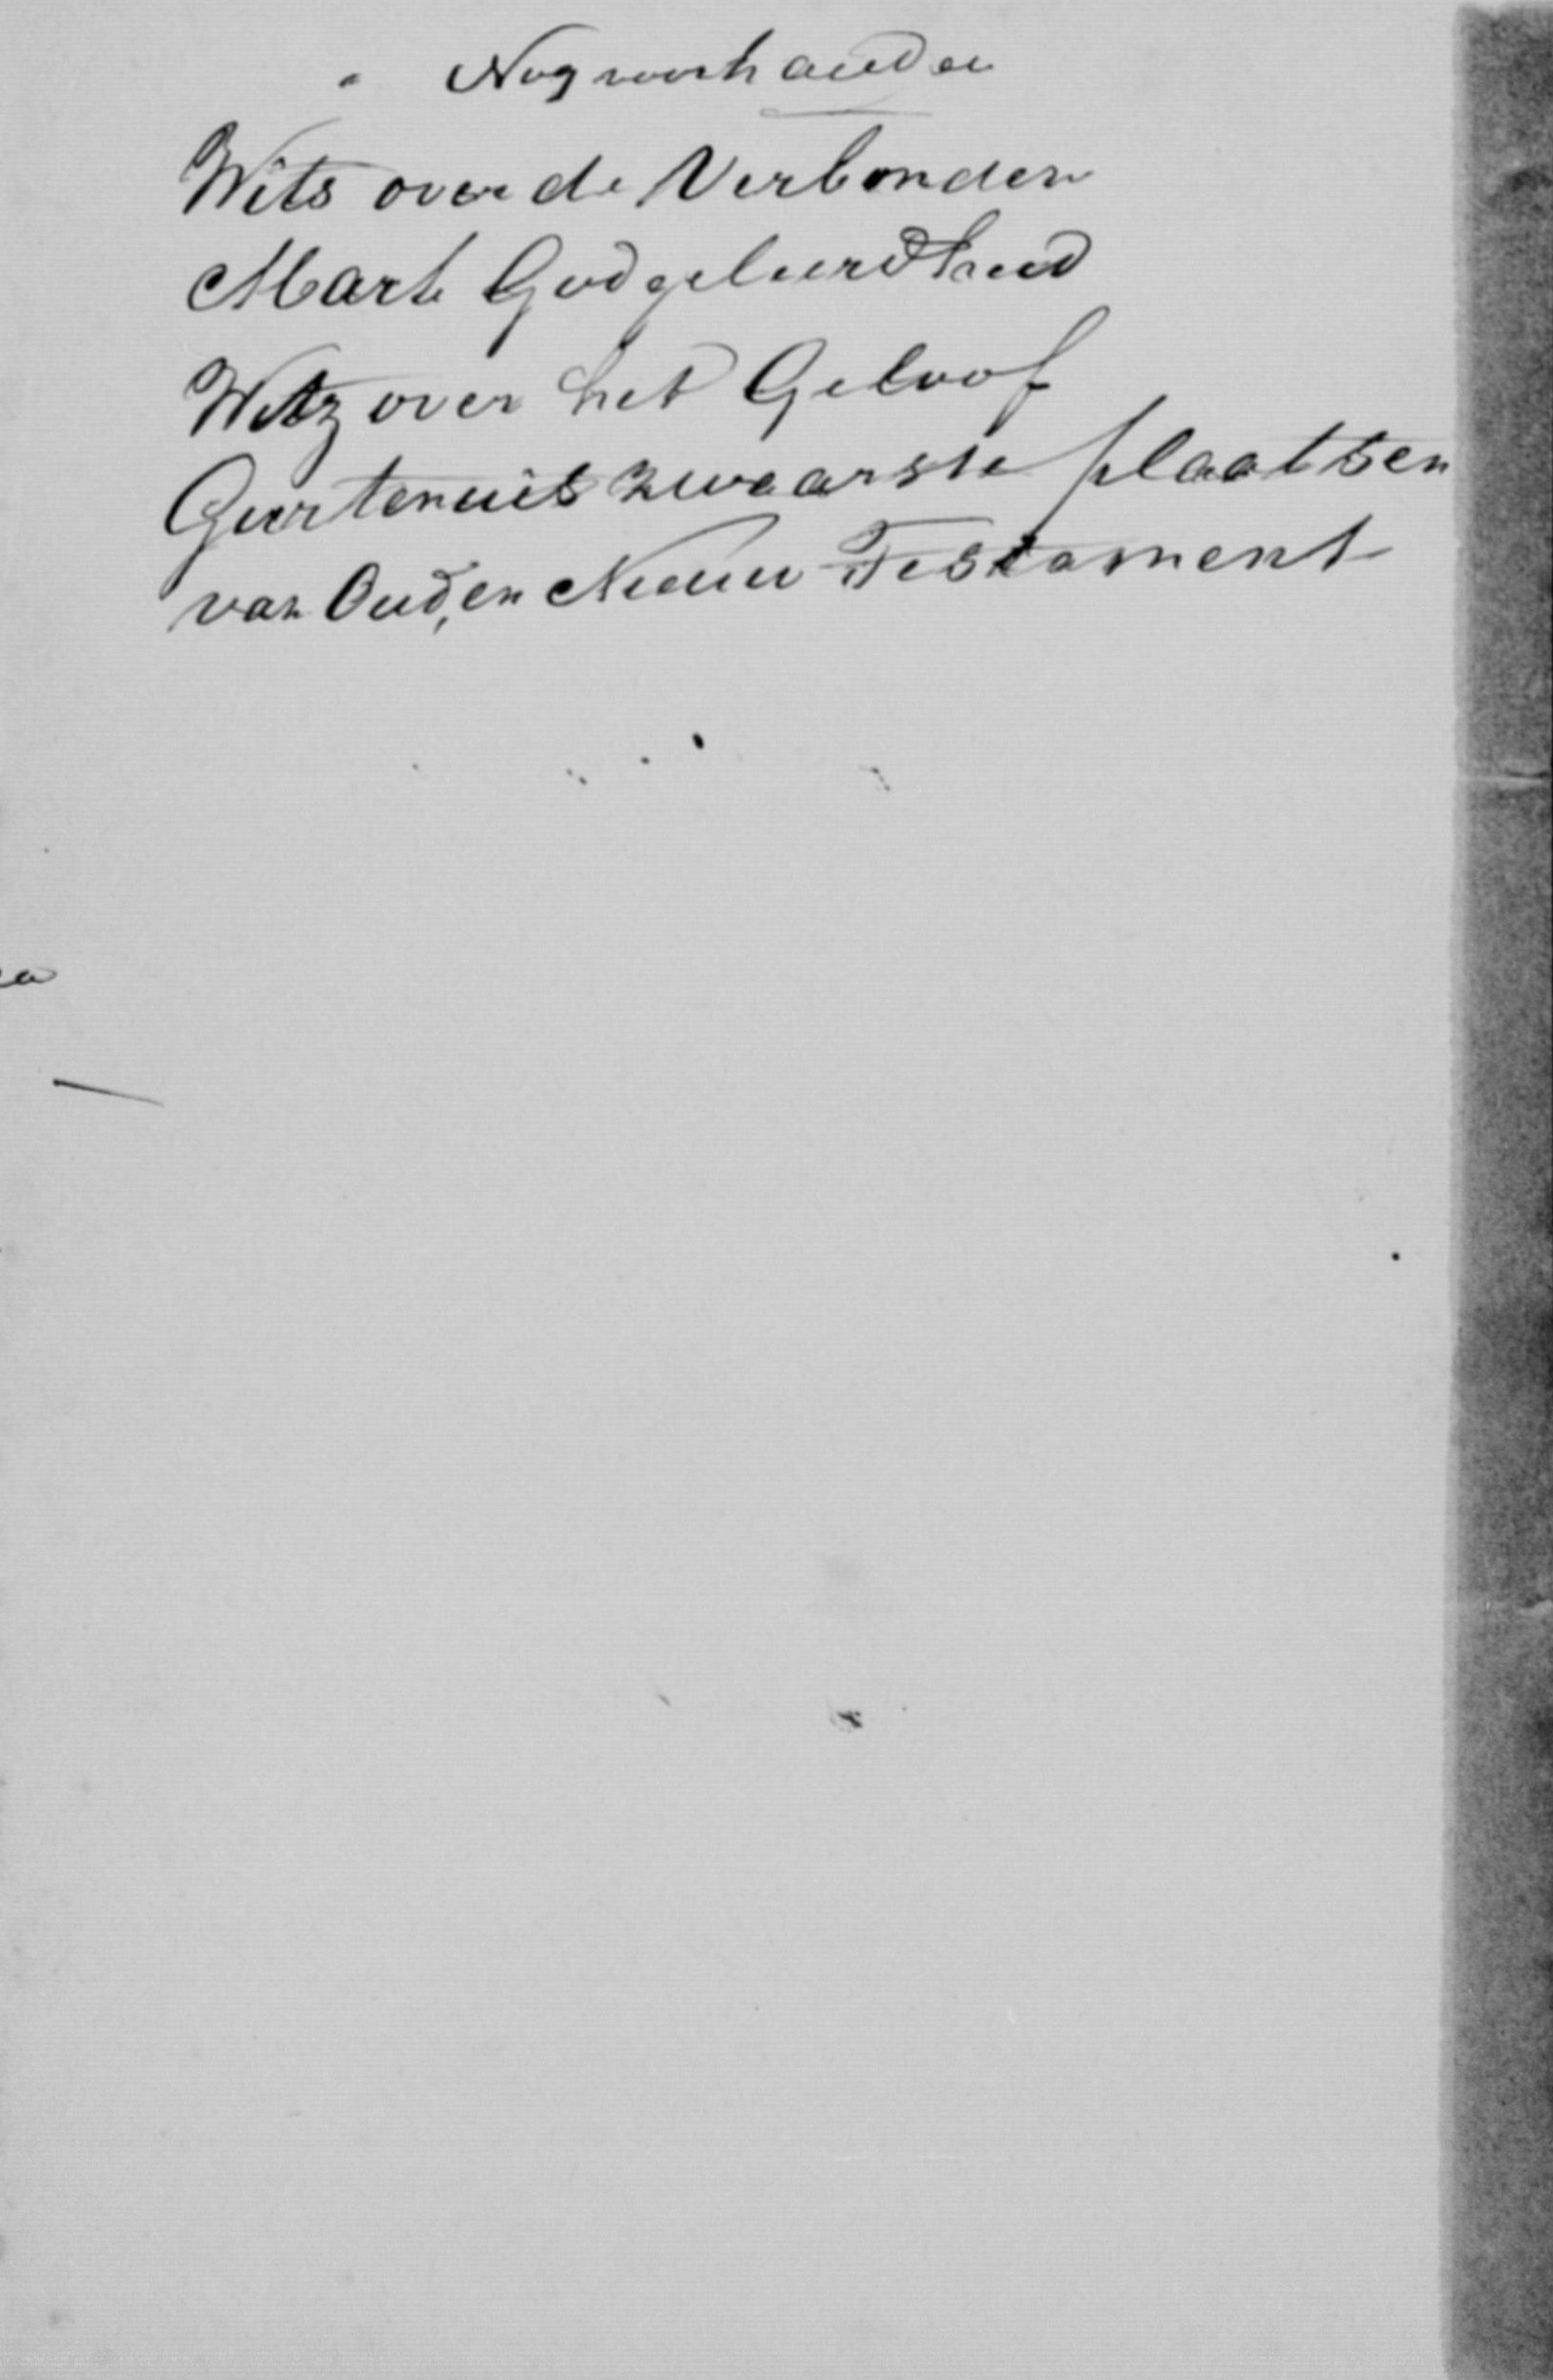 Nog voorhanden
Wits over de Verbonden
Mark Godgeleerdheid
Witz over het Geloof
zwaarste plaatsen
van Oud, en Nieuw Testament